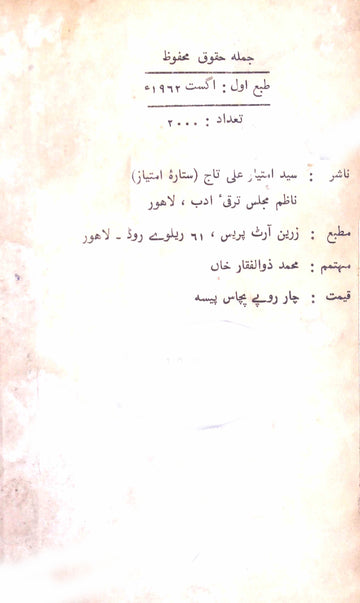 جملہ حقوق محفوظ
طبع اول : اگست ۱۹۶۲ء
تعداد : ۲۰۰۰
ناشر : سید امتیاز علی تاج (ستارۂ امتیاز)
ناظم مجلس ترقیٔ ادب ، لاہور
مطبع : زرین آرٹ پریس ، ۶۱ ریلوے روڈ ۔ لاہور
مہتمم : محمد ذوالفقار خاں
قیمت : چار روپے پچاس پیسہ